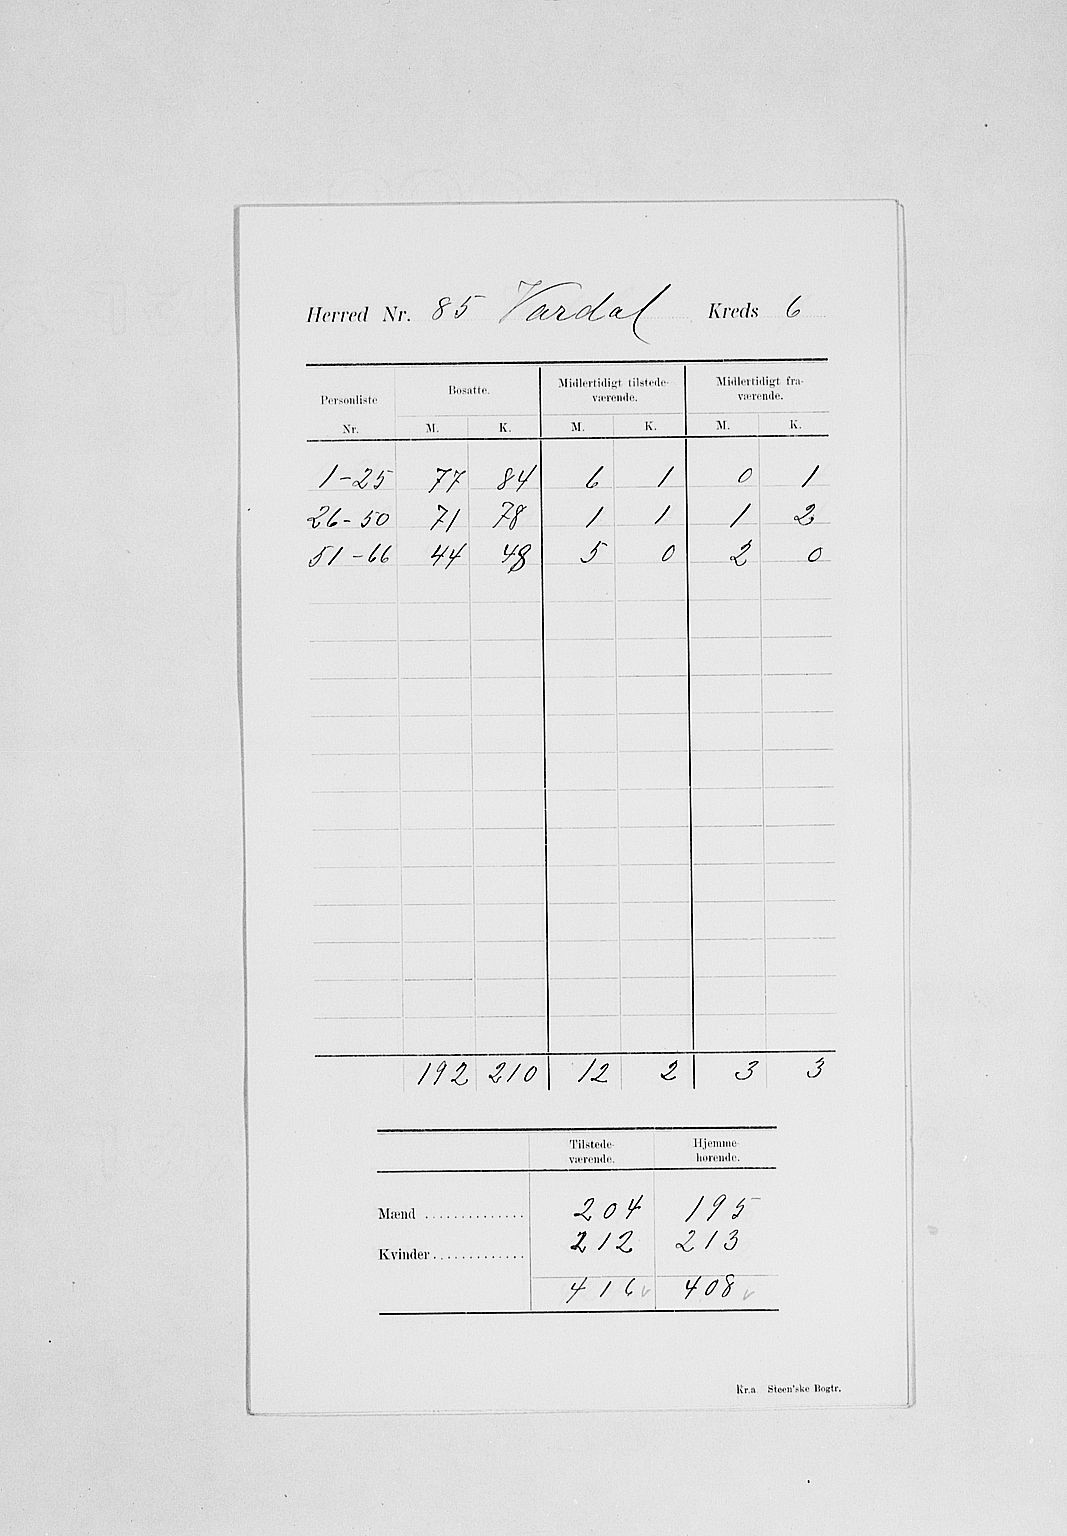 Herred Nr. 85 Vardal Kreds 6
Personliste Nr. Bosatte. Midlertidigt tilstede-værende. Midlertidigt fra-værende.
M. K. M. K. M. K.
1-25 77 84 6 1 0 1
26-50 71 78 1 1 1 2
51-66 44 48 5 0 2 0
192 210 12 2 3 3
Tilstede-værende. Hjemme-hørende.
Mænd .............. 204 195
Kvinder............. 212 213
416 408
Kr.a Steen'ske Bogtr.